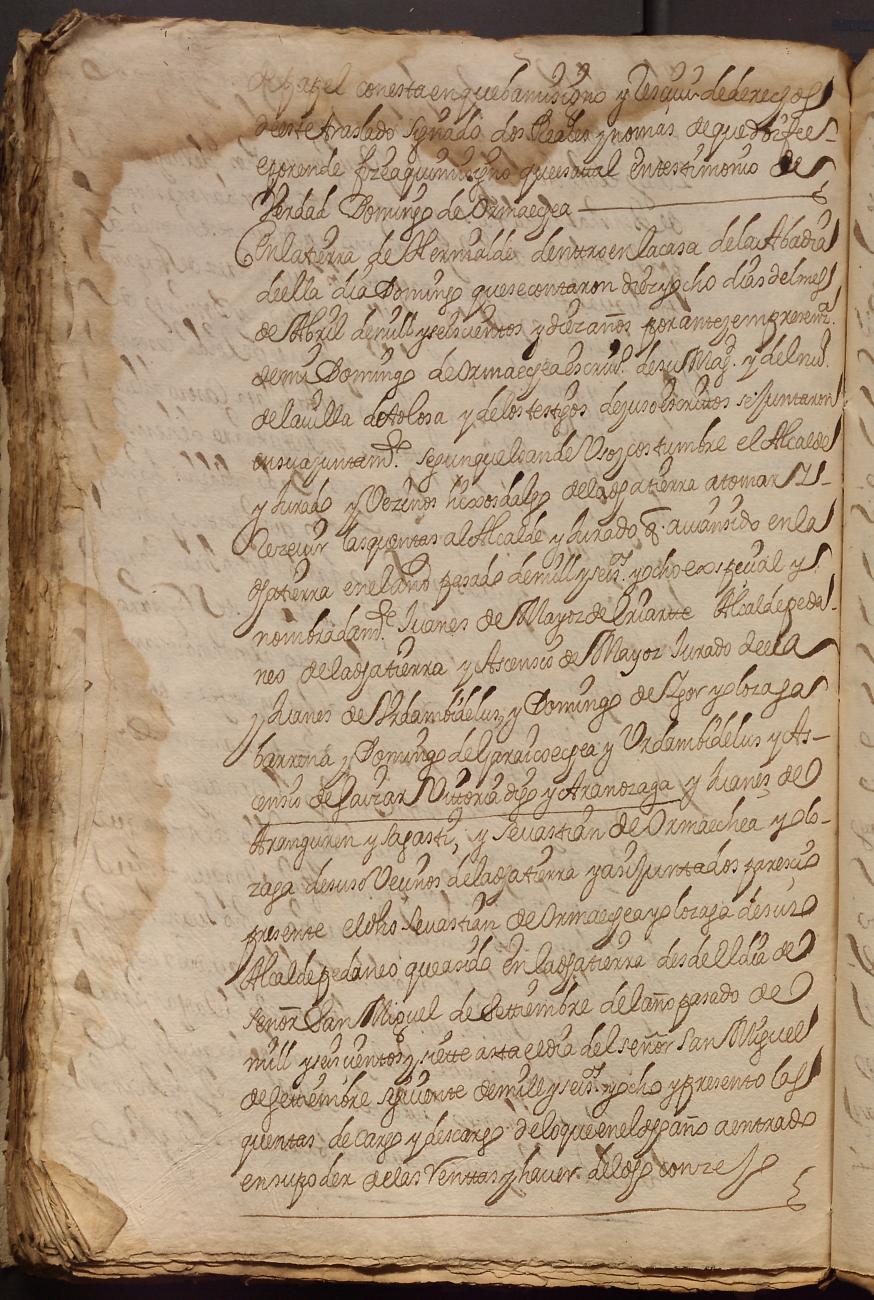 de papel con esta en que ba mi signo y Resçiui de derechos
deeste traslado signado dos Reales y nomas de que doi fee
e porende fize aqui mi signo que es a tal en testimonio de
Verdad Domingo de Ormaechea
En la tierra de Hernialde dentro en la casa de la Abadia
deella dia Domingo que se contaron diez y ocho dias del mes
de Abril de mill y seiscientos y diez años por ante y em presenz.ª
de mi Domingo de Ormaechea escriu.º de su Mag. y del nu.º
de la uilla de tolosa y de los testigos de juso escritos se juntaron
en su ajuntam.to segun que lo an de Uso y costumbre el Alcalde
y Jurado y Vezinos hixosdalgo de la dha tierra a tomar y
Rezeuir las quentas al Alcalde y Jurado q. auian sido en la
dha tierra en el año pasado de mill y seis.os y ocho en espeçial y
nombradam.te Juanes de Mayoz de Yriartte Alcalde peda-
neo de la dha tierra y Ascensio de Mayoz Jurado de ella
y Juanes de Urdambidelus, y Domingo de Yzor y olozaga
barrena y Domingo de Garaicoechea y Urdambidelus y As-
censio de Lauzar Vittoria dho y Aranozaga y Juanes de
Aranguren y sagasti, y Seuastian de Ormaechea y olo-
zaga de suso Veçinos de la dha tierra y asi Juntados paresçio
presente el dho Seuastian de Ormaechea y olozaga de suso
Alcalde pedaneo que a sido en la dha tierra desde el dia de
señor San Miguel de Settiembre del año pasado de
mill y seiscientos y siette asta el dia del señor San Miguel
de Settiembre siguiente de mill y seis.os y ocho y presento las
quentas de cargo y descargo de lo que en el dho año a entrado
en su poder de las Venttas y hauer del dho conzejo